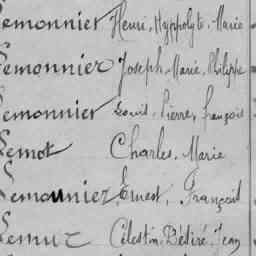 Lemonnier Henri, Hyppolyte, Marie
Lemonnier Joseph, Marie, Philippe
Lemonnier Louis, Pierre, François
Lemot Charles, Marie
Lemounier, Ernest, François
Lemuz Célestin, Désiré, Jean